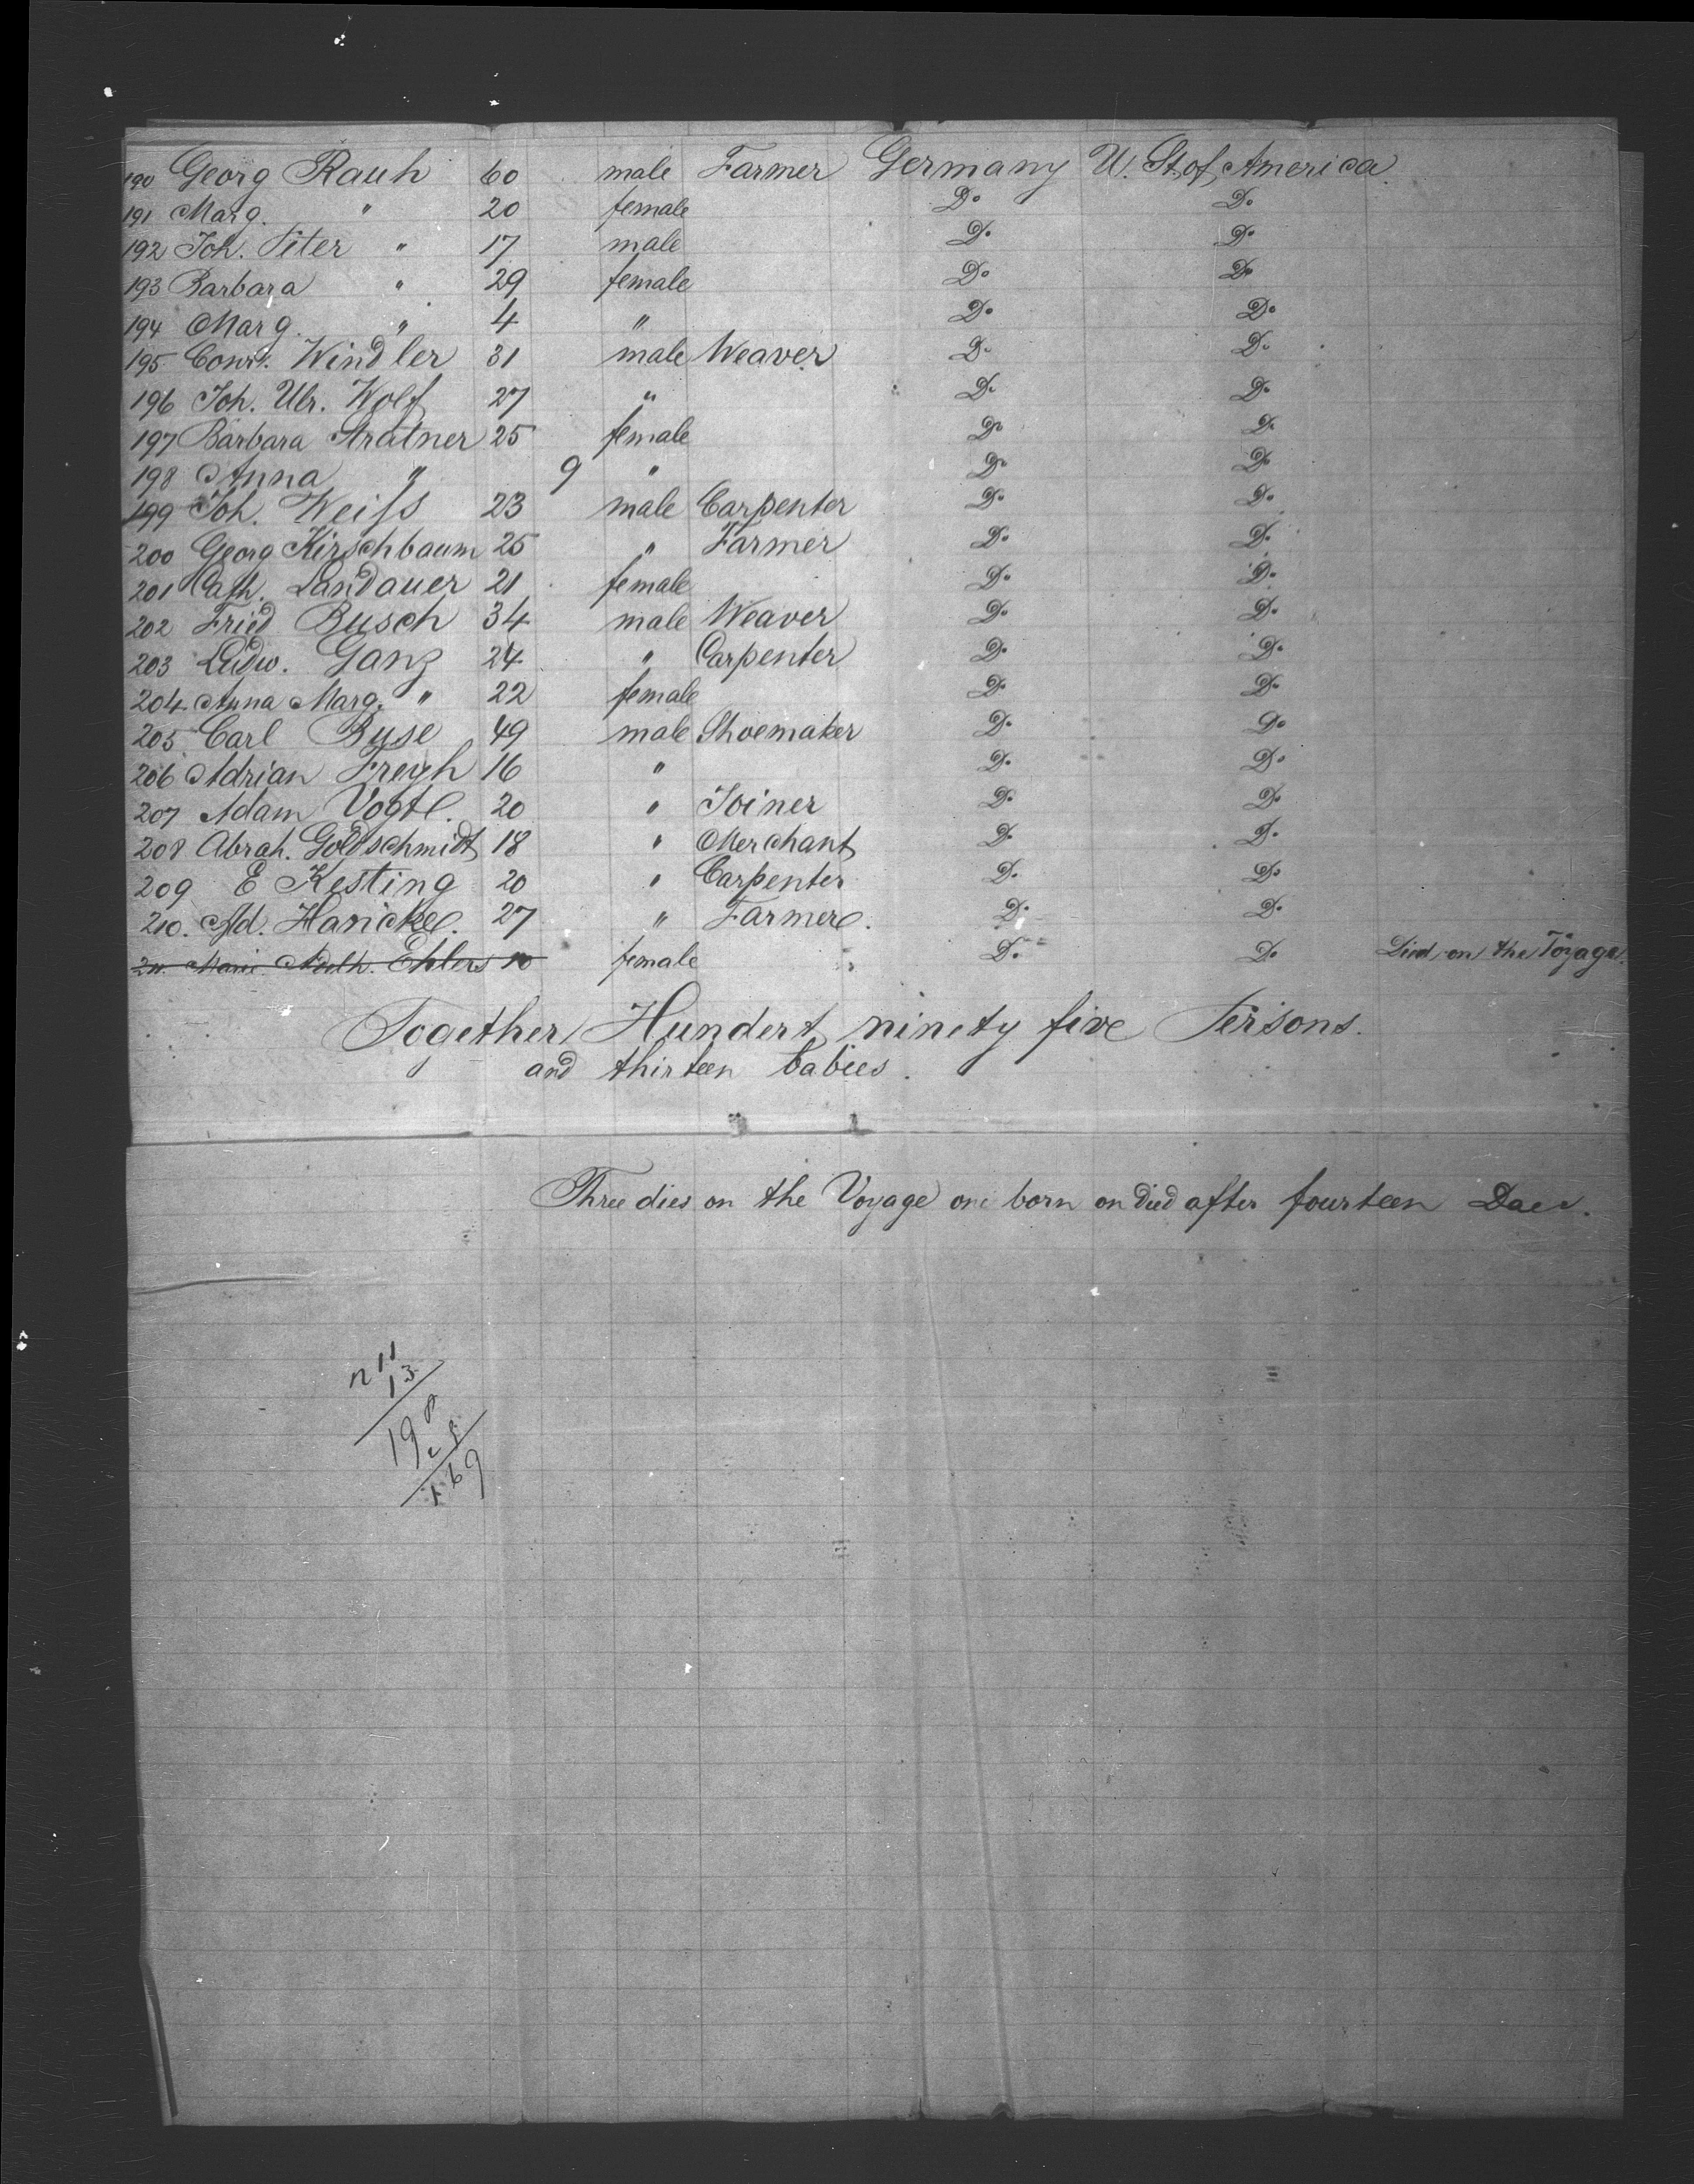 190 Georg Rauh 60 male Farmer Germany U. St. of America
191 Marg. " 20 female Do Do
192 Joh. Peter " 17 male Do Do
193 Barbara " 29 female Do Do
194 Marg. " 4 " Do Do
195 Conr. Windler 31 male Weaver Do Do
196 Joh. Ulr. Wolf 27 " Do Do
197 Barbara Stratner 25 female Do Do
198 Anna " 9 " Do Do
199 Joh. Weiſs 23 male Carpenter Do Do
200 Georg Kirschbaum 25 " Farmer Do Do
201 Cath. Landauer 21 female Do Do
202 Fried Busch 34 male Weaver Do Do
203 Ludw. Ganz 24 " Carpenter Do Do
204 Anna Marg. " 22 female Do Do
205 Carl Buse 49 male Shoemaker Do Do
206 Adrian Freyh 16 " Do Do
207 Adam Vogtl. 20 " Joiner Do Do
208 Abrah. Goldschmidt 18 " Merchant Do Do
209 E Kesting 20 " Carpenter Do Do
210. Ad. Hanicke. 27 " Farmer. Do Do
211 Marie Adelh. Ehlers 10 female Do Do Died on the Voyage.
Together Hundert ninety five Persons.
and thirteen babies.
Three dies on the Voyage one born on died after fourteen Daes.
211
13
198
169